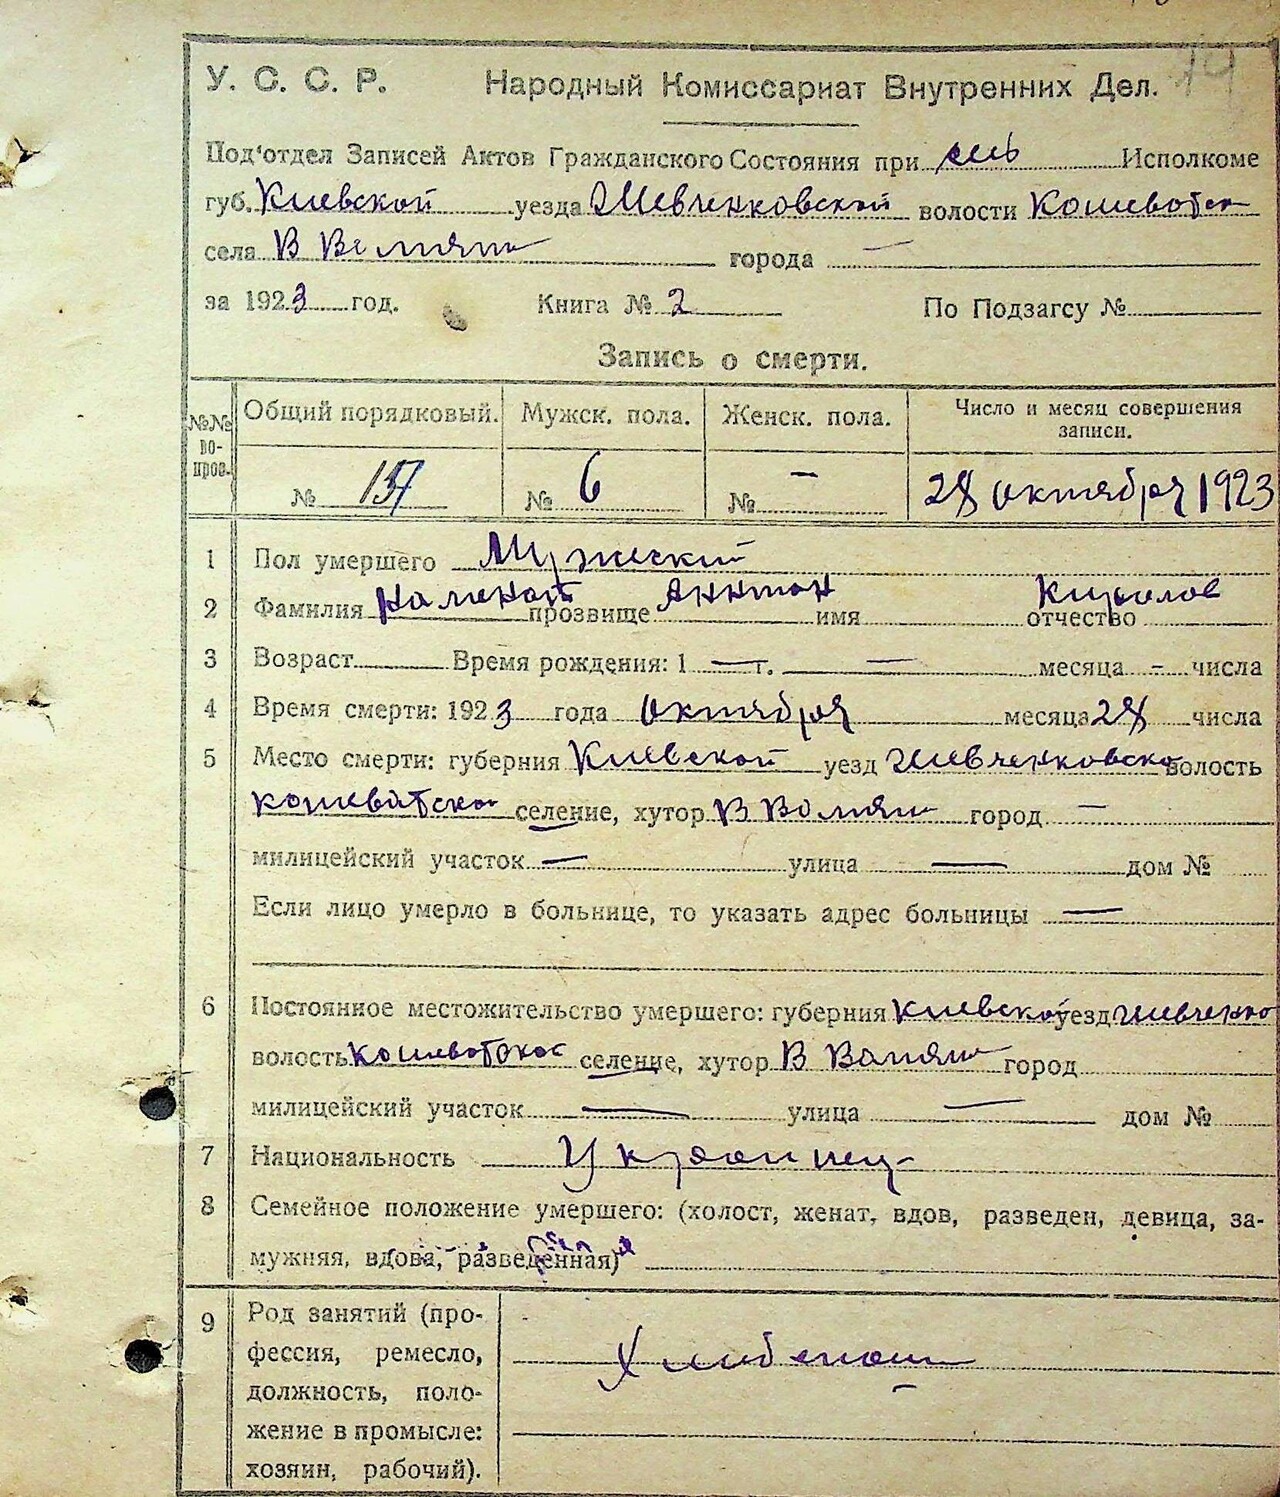 У. С. С. Р. Народный Комиссариат Внутренних Дел. 14
Под'отдел Записей Актов Гражданского Состояния при Исполкоме
губ. Киевской уезда Шевченковской волости Кошеватско
села В города —
за 1923 год. Книга № 2 По Подзагсу №
Запись о смерти.
№№ вопров. Общий порядковый. Мужск. пола. Женск. пола. Число и месяц совершения записи.
№ 137 № 6 № – 28 октября 1923
1 Пол умершего Мужеский
2 Фамилия прозвище Аннтон имя Кирилов отчество
3 Возраст Время рождения: 1 — г. — месяца - числа
4 Время смерти: 1923 года Октября месяца 28 числа
5 Место смерти: губерния Киевской уезд Шевченковско волость
кошеватско селение, хутор В город —
милицейский участок — улица — дом №
Если лицо умерло в больнице, то указать адрес больницы —
6 Постоянное местожительство умершего: губерния Киевской уезд шевченко
волость кошеватское селение, хутор В город
милицейский участок — улица — дом №
7 Национальность Украинец
8 Семейное положение умершего: (холост, женат, вдов, разведен, девица, за-
мужняя, вдова, разведенная)
9 Род занятий (про-
фессия, ремесло, Хлибепаш
должность, поло-
жение в промысле:
хозяин, рабочий).